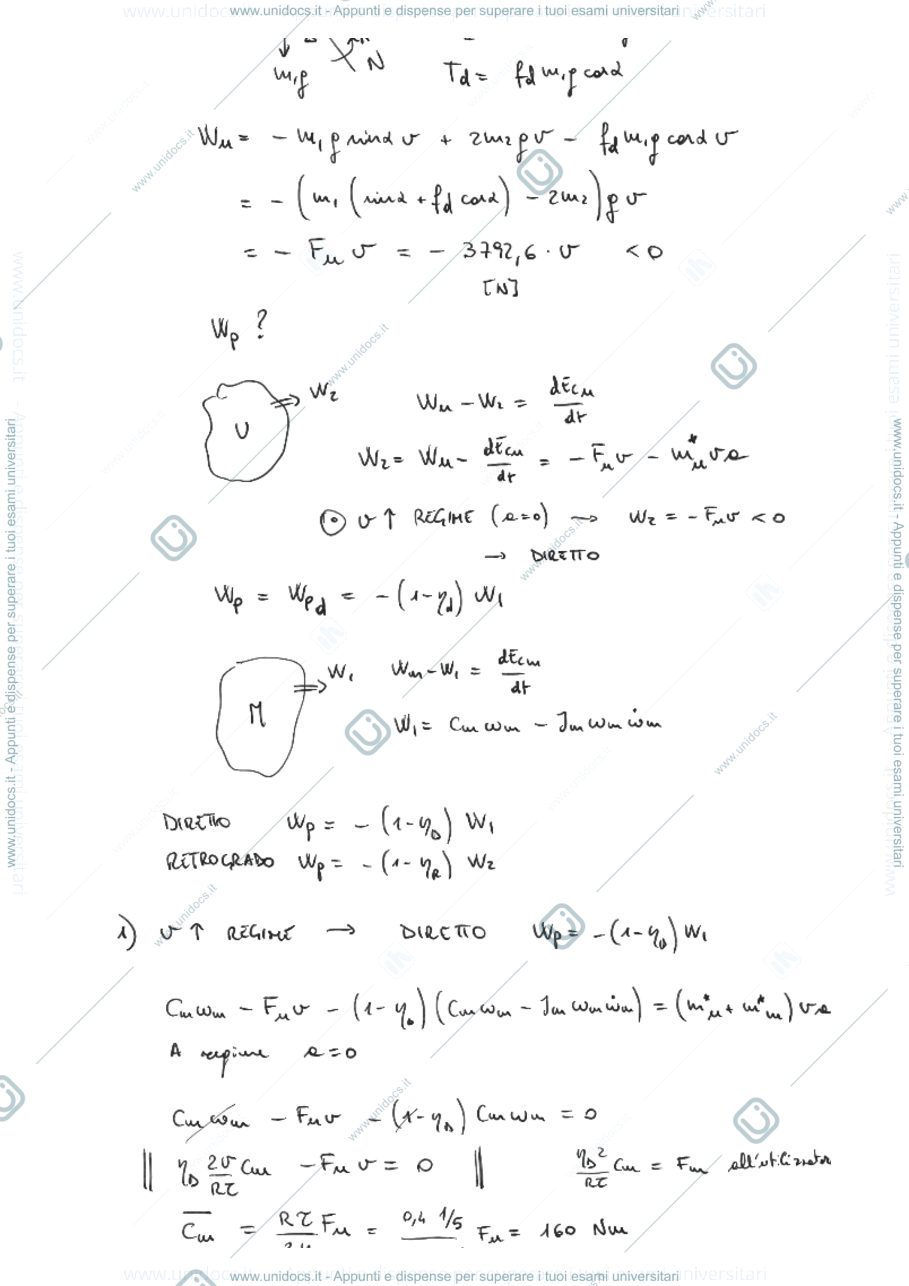 www.unidocs.it - Appunti e dispense per superare i tuoi esami universitari
m₁g N T_d = f_d m₁g cosα
W_u = - m₁g sinα v + 2m₂gv - f_d m₁g cosα v
= - (m₁ (sinα + f_d cosα) - 2m₂) g v
= - F_u v = - 3792,6 · v < 0
[N]
W_p ?
U W₂ W_u - W₂ = dE_cu/dt
W₂ = W_u - dE_cu/dt = - F_u v - m*_u v a
v ↑ REGIME (a=0) → W₂ = - F_u v < 0
→ DIRETTO
W_p = W_pd = - (1-η_d) W₁
M W₁ W_m - W₁ = dE_cm/dt
W₁ = C_m ω_m - J_m ω_m ω̇_m
DIRETTO W_p = - (1-η_D) W₁
RETROGRADO W_p = - (1-η_R) W₂
1) v ↑ REGIME → DIRETTO W_p = - (1-η_D) W₁
C_m ω_m - F_u v - (1-η_D) (C_m ω_m - J_m ω_m ω̇_m) = (m*_u + m*_m) v a
A regime a=0
C_m ω_m - F_u v - (1-η_D) C_m ω_m = 0
|| η_D 2v/Rτ C_m - F_u v = 0 || η_D 2/Rτ C_m = F_m all'utilizzator
C̄_m = Rτ/2η F_u = 0,4 1/5 F_u = 160 Nm
www.unidocs.it - Appunti e dispense per superare i tuoi esami universitari